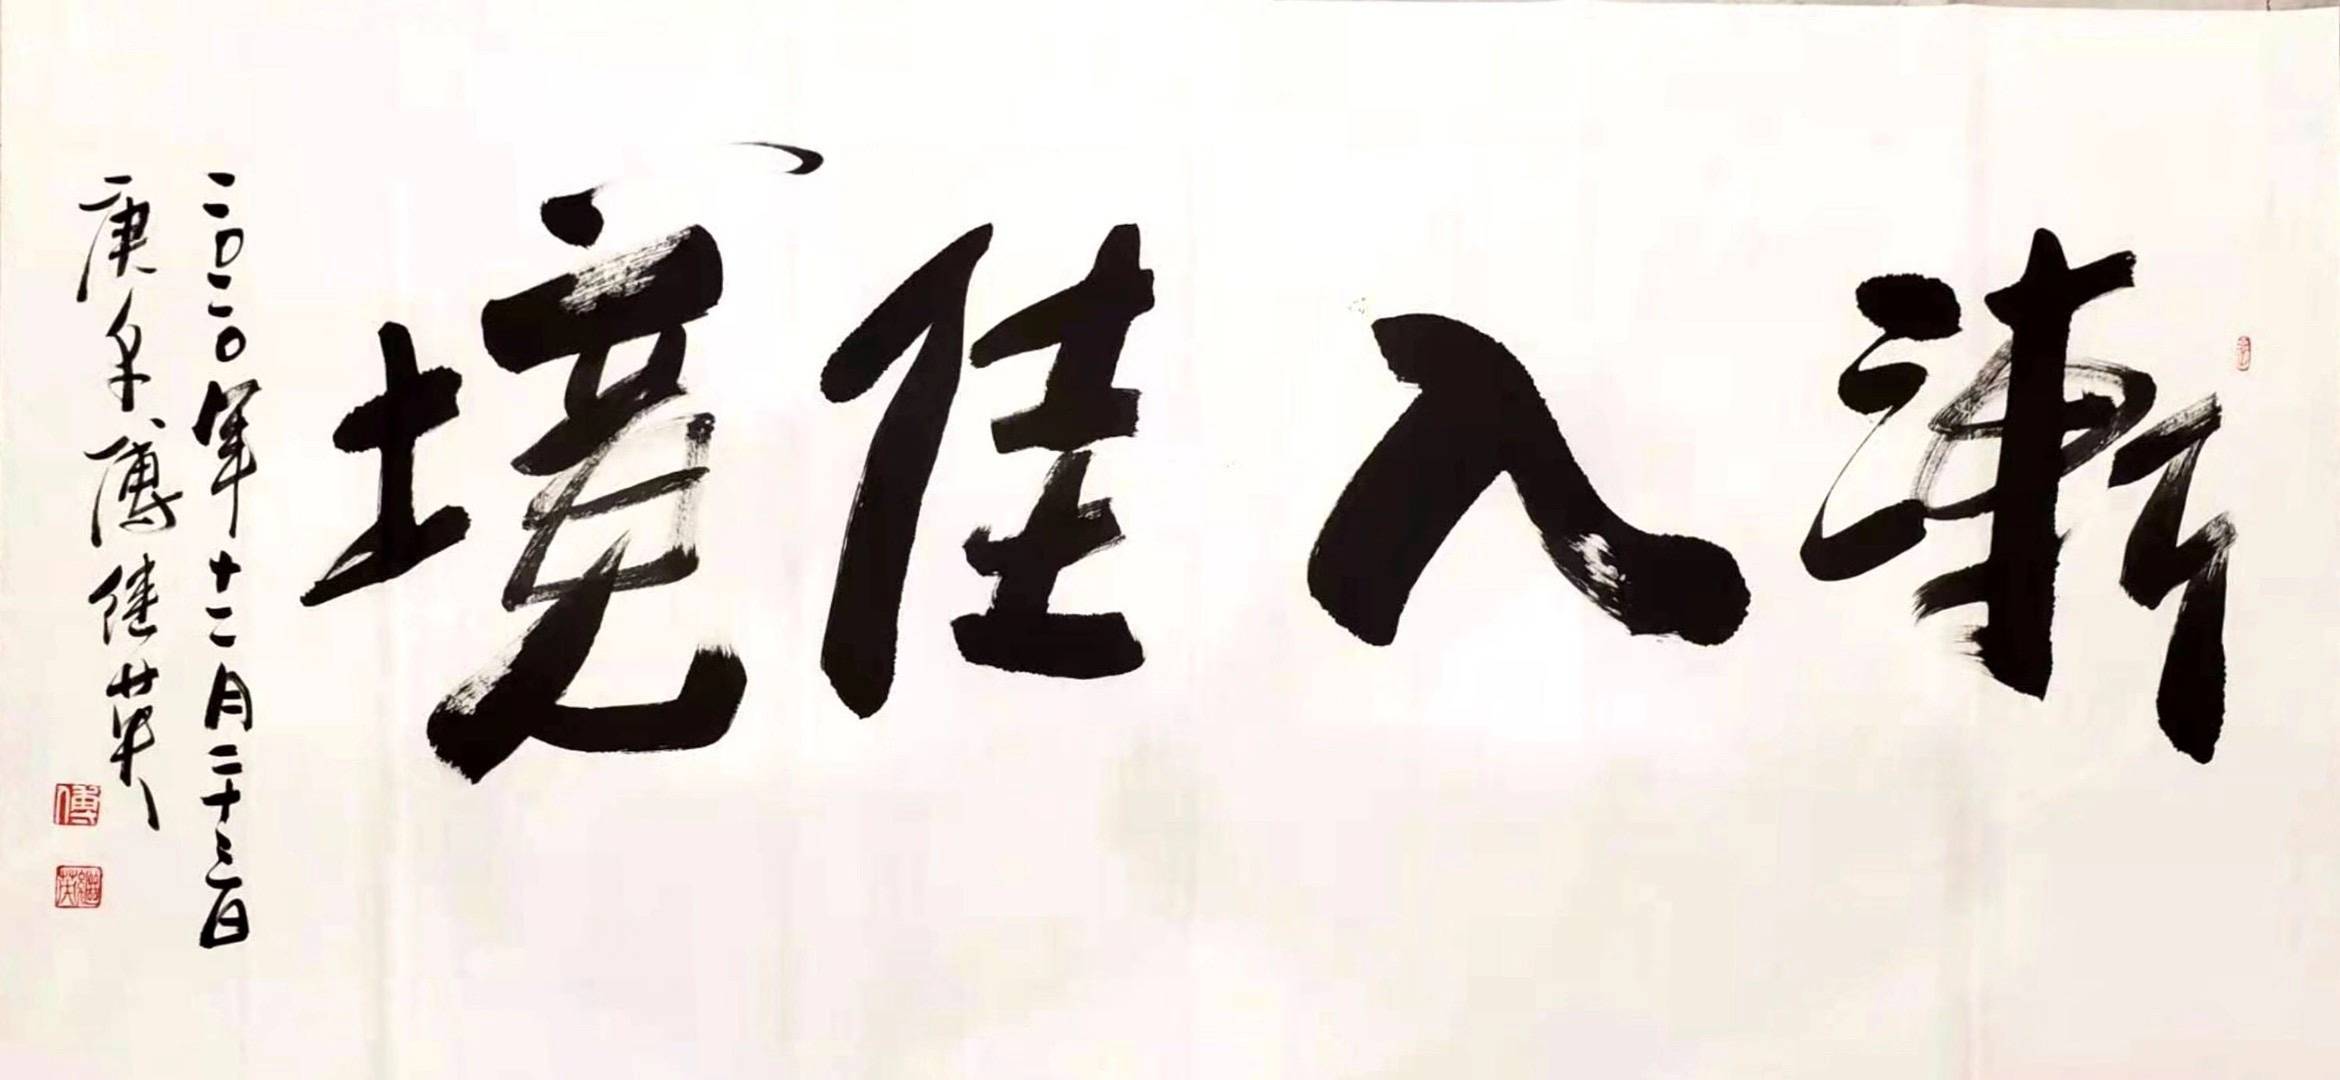 漸入佳境
二〇二〇年十二月二十三日
庚子傅继英
傅
繼英